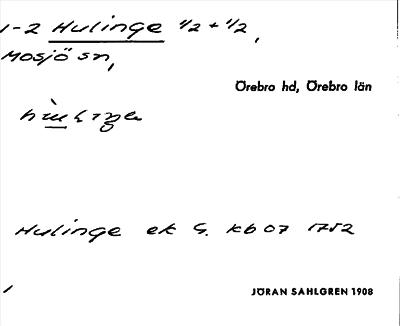 1-2 Hulinge 1/2 + 1/2,
Mosjö sn,
Örebro hd, Örebro län
Hulinge ek G. kb 07 1752
JÖRAN SAHLGREN 1908